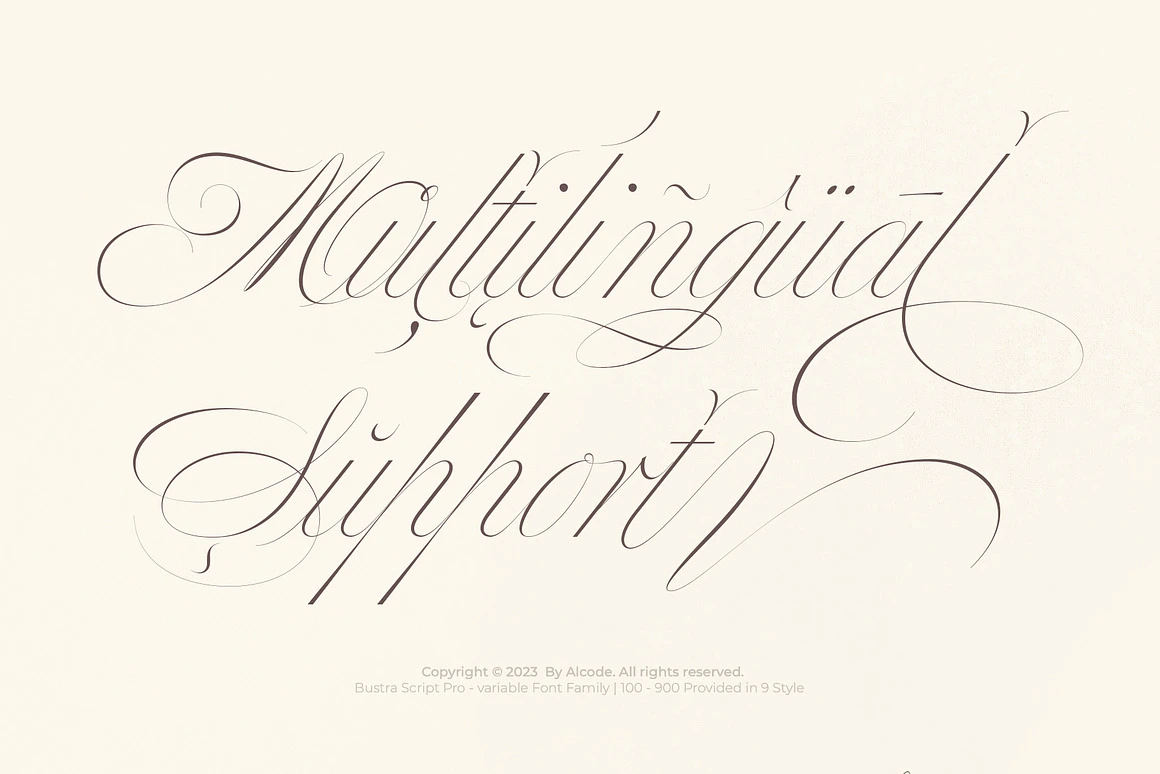 Muļťiĺiñģüāľ
Şŭpporť
Copyright © 2023 By Alcode. All rights reserved.
Bustra Script Pro - variable Font Family | 100 - 900 Provided in 9 Style